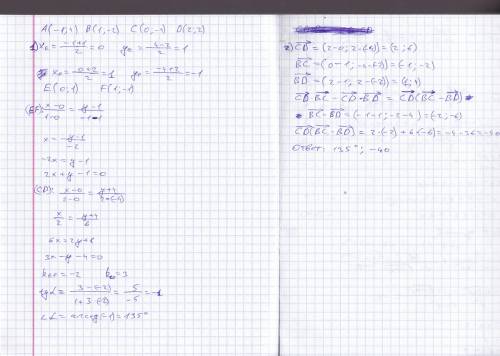 A(-1;4) B(1;-2) C(0;-4) D(2;2)
1) x_E = (-1+1)/2 = 0 y_E = (4-2)/2 = 1
x_F = (0+2)/2 = 1 y_F = (-4+2)/2 = -1
E(0;1) F(1;-1)
(EF): (x-0)/(1-0) = (y-1)/(-1-1)
x = (y-1)/-2
-2x = y-1
2x+y-1=0
(CD): (x-0)/(2-0) = (y+4)/(2+(-4))
x/2 = (y+4)/6
6x=2y+8
3x-y-4=0
k_EF = -2 k_CD = 3
tgα = (3-(-2))/(1+3·(-2)) = 5/-5 = -1
∠α = arctg(-1) = 135°
2) CD = (2-0; 2-(-4)) = (2; 6)
BC = (0-1; -4-(-2)) = (-1; -2)
BD = (2-1; 2-(-2)) = (1; 4)
CD·BC - CD·BD = CD(BC-BD)
BC-BD = (-1-1; -2-4) = (-2; -6)
CD(BC-BD) = 2·(-2)+6·(-6) = -4-36 = -40
Ответ: 135°; -40